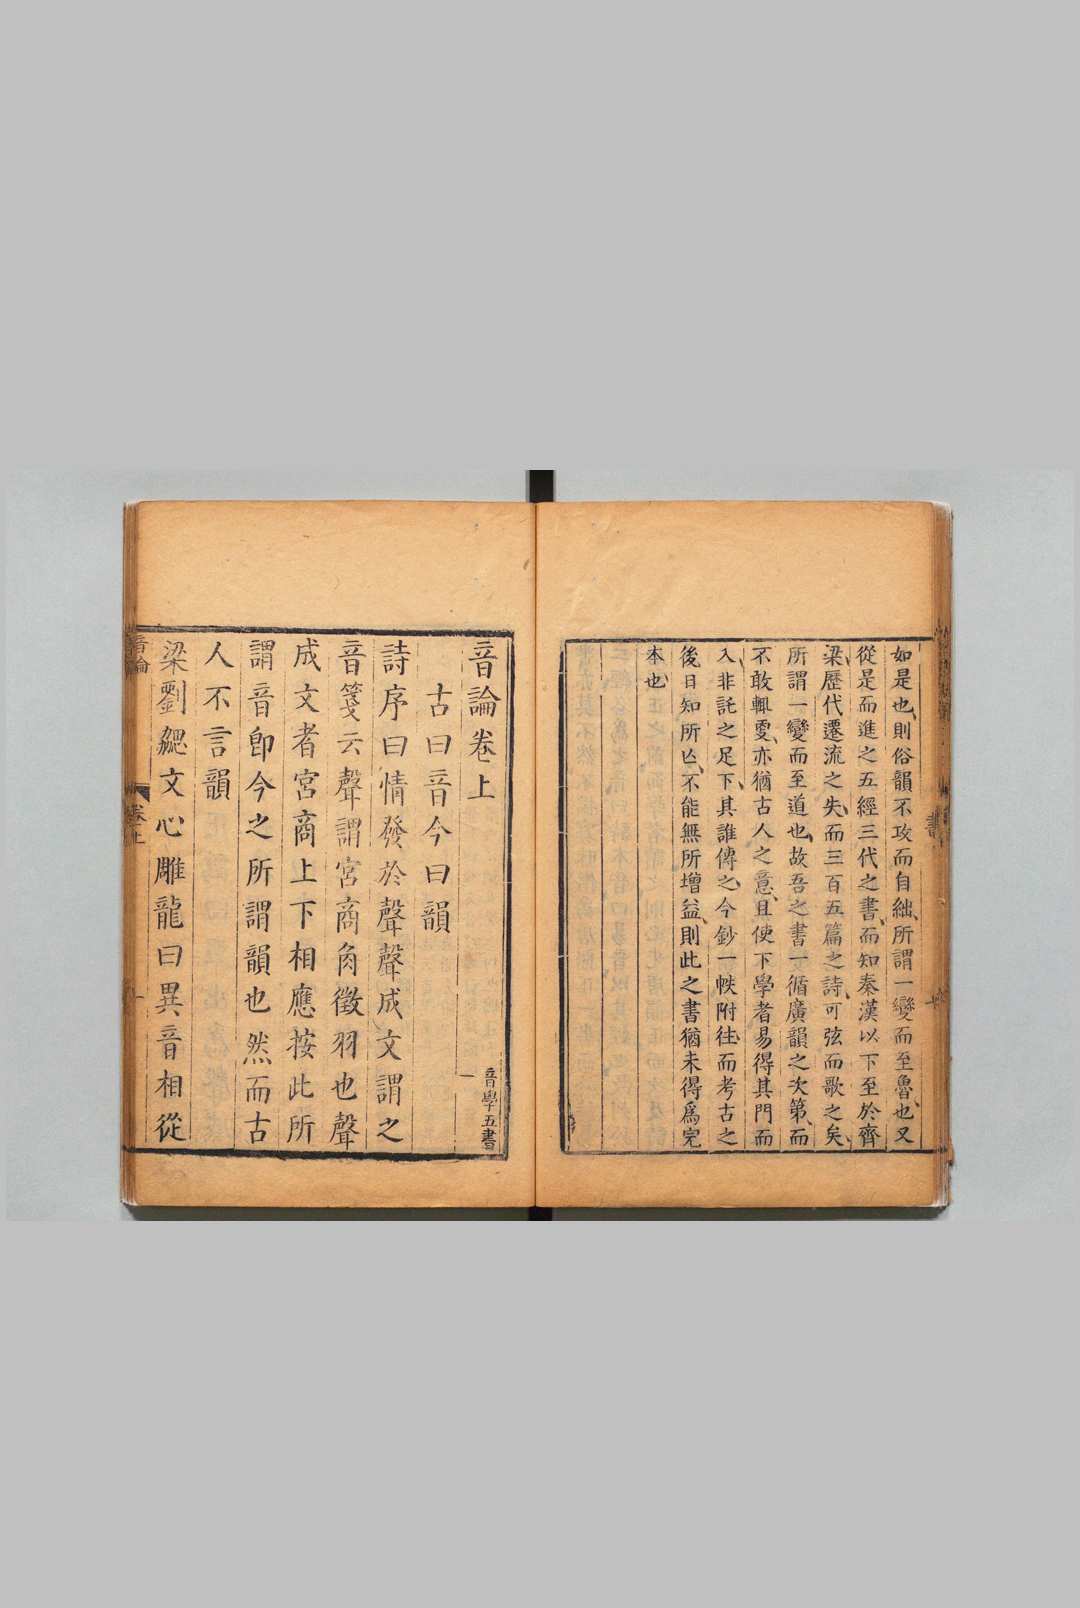 如是也則俗韻不攻而自絀所謂一變而至魯也又
從是而進之五經三代之書而知秦漢以下至於齊
梁歷代遷流之失而三百五篇之詩可弦而歌之矣
所謂一變而至道也故吾之書一循廣韻之次第而
不敢輒更亦猶古人之意且使下學者易得其門而
入非託之足下其誰傳之今鈔一帙附往而考古之
後日知所亾不能無所增益則此之書猶未得爲完
本也
音論卷上
音學五書
一
古曰音今曰韻
詩序曰情發於聲聲成文謂之
音箋云聲謂宮商角徵羽也聲
成文者宮商上下相應按此所
謂音卽今之所謂韻也然而古
人不言韻
梁劉勰文心雕龍曰異音相從
音論
卷上
一